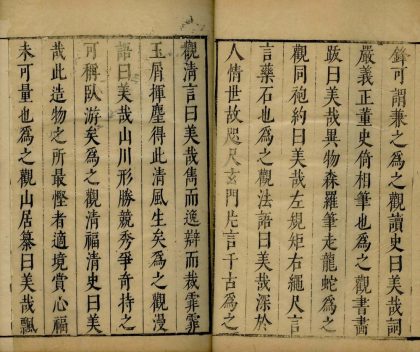 鋒可謂兼之為之觀讀史曰美哉詞
嚴義正董史倚相筆也為之觀書畵
跋曰美哉異物森羅筆走龍蛇為之
觀同袍約曰美哉左規矩右繩尺言
言藥石也為之觀法語曰美哉深於
人情世故咫尺玄門片言千古為之
觀清言曰美哉雋而遒辯而裁霏霏
玉屑揮麈得此清風生矣為之觀漫
語曰美哉山川形勝競秀爭奇持之
可稱臥游矣為之觀清福清史曰美
哉此造物之所最慳者適境賞心福
未可量也為之觀山居纂曰美哉飄